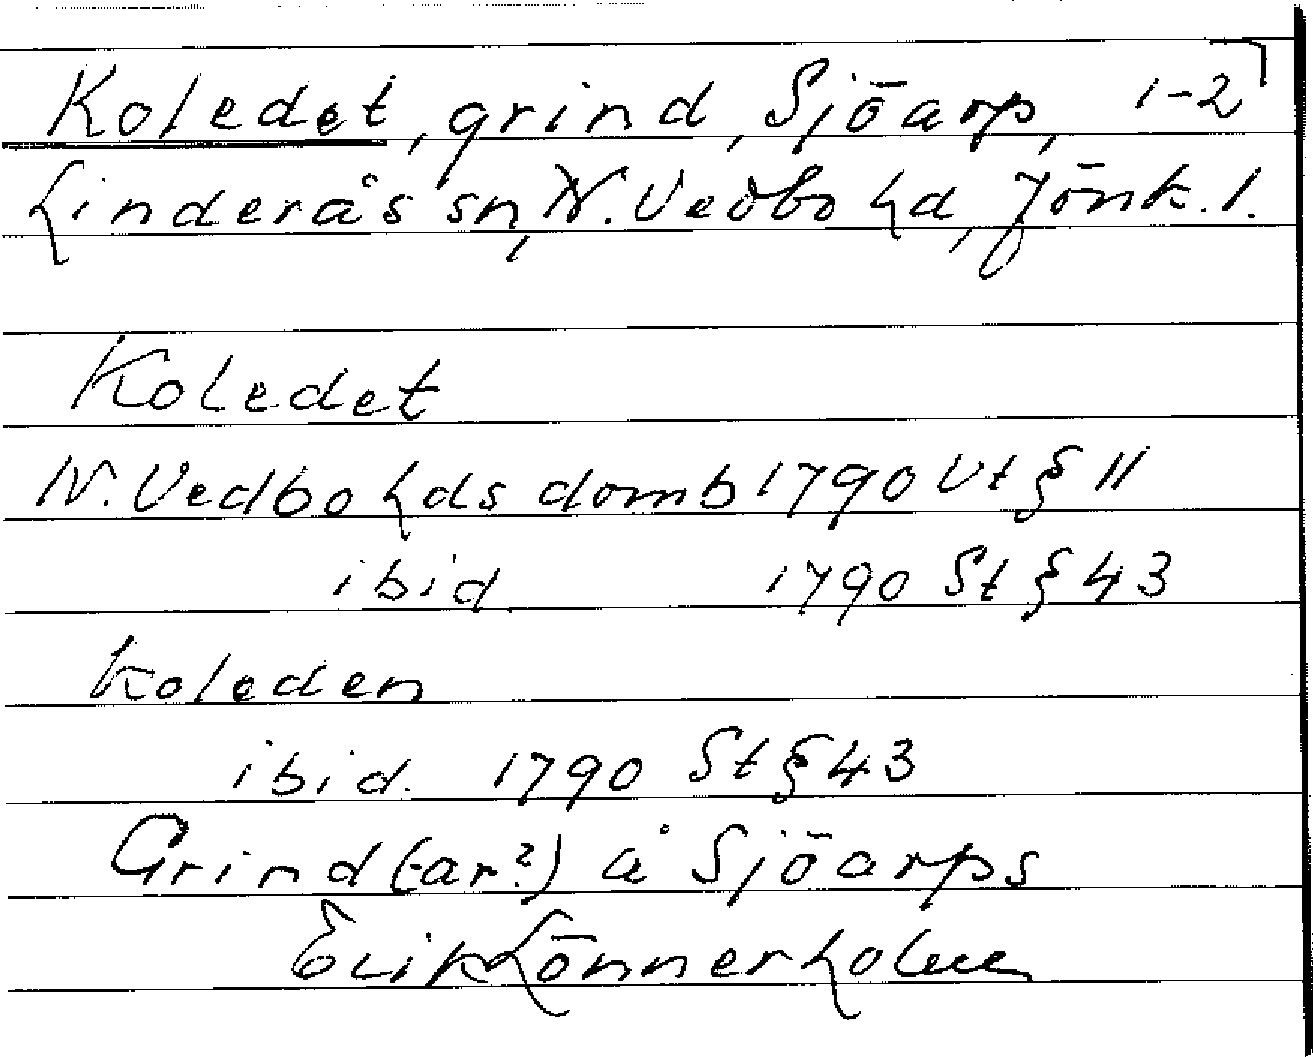 Koledet, grind, Sjöarp, 1-2
Linderås sn, N. Vedbo hd, Jönk. l.
Koledet
N. Vedbo hds domb 1790 Vt § 11
ibid. 1790 St § 43
Koleden
ibid. 1790 St § 43
Grind (-ar?) å Sjöarps
Erik Lönnerholm